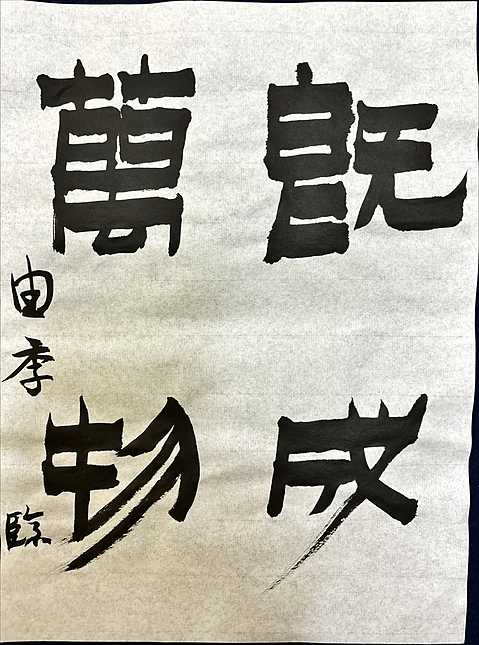 既成
萬物
由季臨